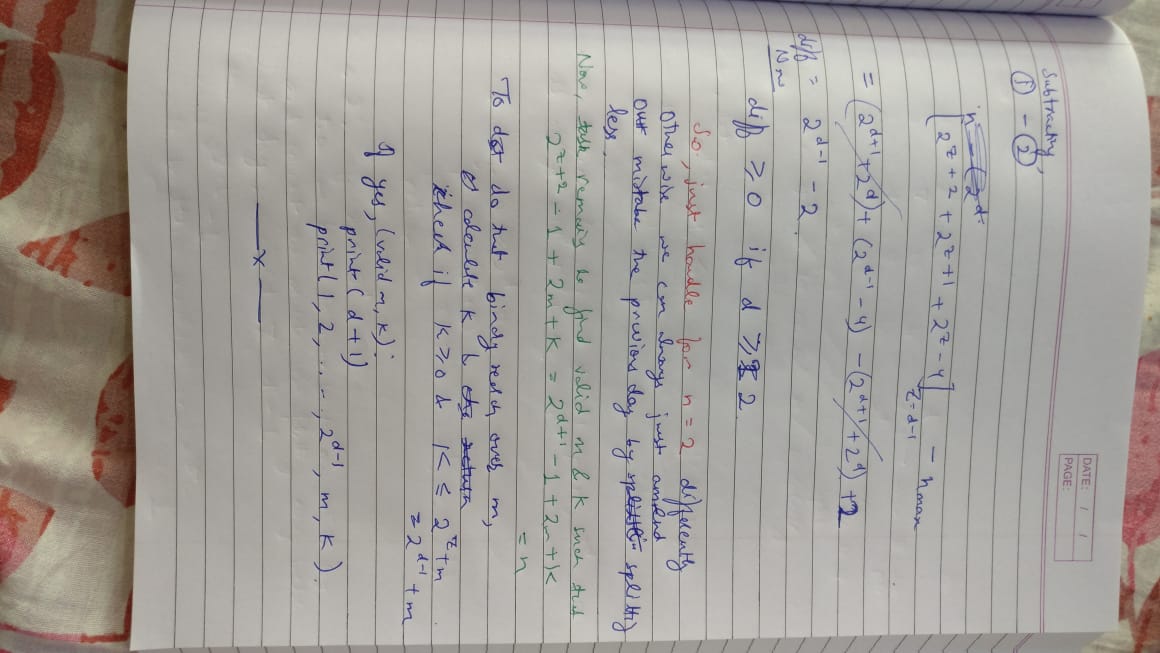 DATE: / /
PAGE:
Subtracting,
① - ②
[2^{z+2} + 2^{z+1} + 2^z - 4]_{z=d-1} - n_{max}
= (2^{d+1} + 2^d) + (2^{d-1} - 4) - (2^{d+1} + 2^d) + 2
diff = 2^{d-1} - 2
Now
diff ≥ 0 if d ≥ 2
So, just handle for n = 2 differently
Otherwise we can always just amend
our mistake the previous day by splitting
less.
Now, task remains to find valid m & k such that
2^{z+2} - 1 + 2m + k = 2^{d+1} - 1 + 2m + k
= n
To do that binary search over m,
calculate k &
check if k ≥ 0 & k ≤ 2^z + m
= 2^{d-1} + m
If yes, (valid m, k):
print(d+1)
print(1, 2, ...., 2^{d-1}, m, k).
—x—